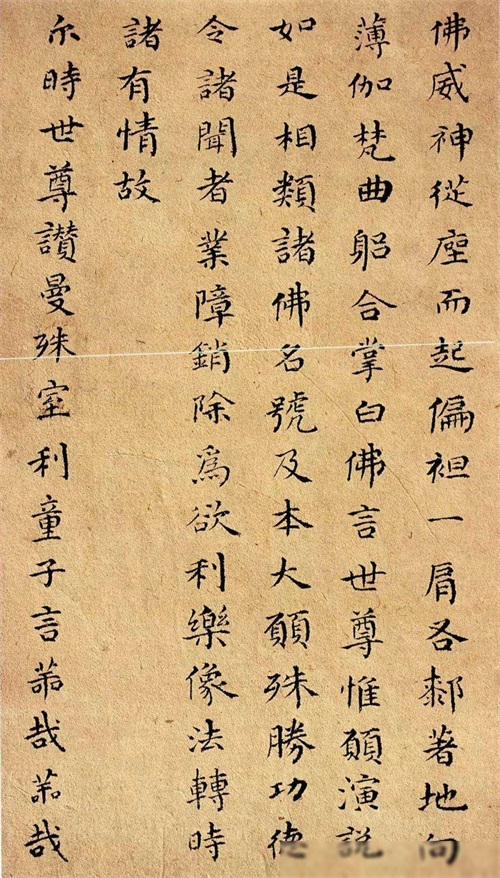 佛威神從座而起偏袒一肩右膝著地向
薄伽梵曲躬合掌白佛言世尊惟願演說
如是相類諸佛名號及本大願殊勝功德
令諸聞者業障銷除爲欲利樂像法轉時
諸有情故
尒時世尊讚曼殊室利童子言善哉善哉